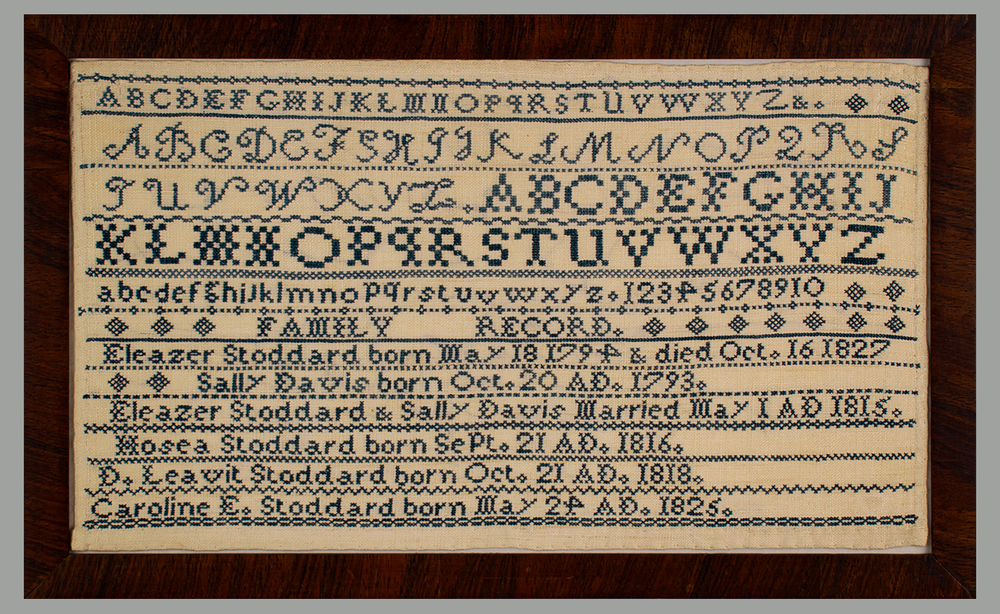 ABCDEFGHIJKLMNOPQRSTUVWXYZ&.
ABCDEFGHIJKLMNOPQRS
TUVWXYZ. ABCDEFGHIJ
KLMNOPQRSTUVWXYZ
abcdefghijklmnopqrstuvwxyz.12345678910
FAMILY RECORD.
Eleazer Stoddard born May 18 1794 & died Oct. 16 1827
Sally Davis born Oct. 20 AD. 1793.
Eleazer Stoddard & Sally Davis Married May 1 AD 1815.
Hosea Stoddard born SePt. 21 AD. 1816.
D. Leavit Stoddard born Oct. 21 AD. 1818.
Caroline E. Stoddard born May 24 AD. 1825.